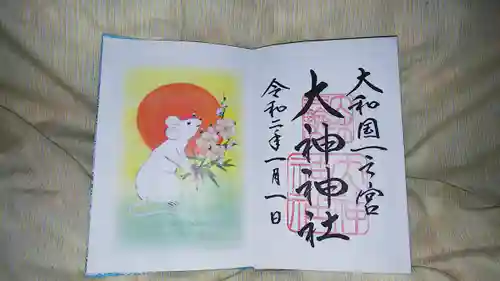 大和国一之宮
大神神社
令和二年一月一日